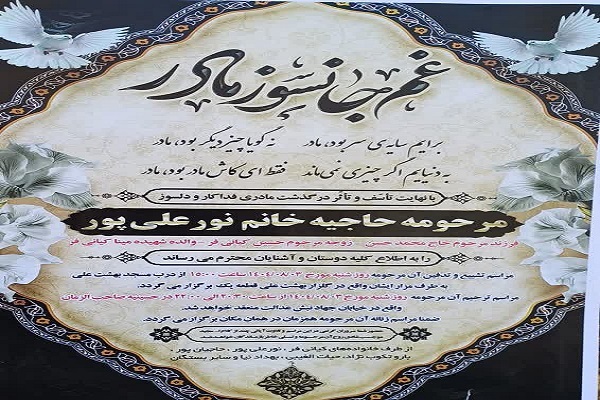 غم جانسوز مادر
برایم سایه‌ی سر بود، مادر نه گویا چیز دیگر بود، مادر
به دنیایم اگر چیزی نمی‌ماند فقط ای کاش مادر بود، مادر
با نهایت تأسف و تأثر درگذشت مادری فداکار و دلسوز
مرحومه حاجیه خانم نورعلی پور
فرزند مرحوم حاج محمد حسن - زوجه مرحوم حسین کیانی فر - والده شهیده مینا کیانی فر
را به اطلاع کلیه دوستان و آشنایان محترم می رساند
مراسم تشییع و تدفین آن مرحومه روز شنبه مورخ ۱۴۰۴/۰۸/۰۳ ساعت ۱۵:۰۰ از درب مسجد بهشت علی
به طرف مزار ایشان واقع در گلزار بهشت علی قطعه یک برگزار می گردد.
مراسم ترحیم آن مرحومه روز شنبه مورخ ۱۴۰۴/۰۸/۰۳ از ساعت ۲۰:۳۰ الی ۲۲:۰۰ در حسینیه صاحب الزمان
واقع در خیابان جهادبنش عدالت منعقد خواهد شد.
ضمنا مراسم زنانه آن مرحومه همزمان در همان مکان برگزار می گردد.
از طرف خانواده‌های کیانی فر - نورعلی پور - حاجیان پور
نژاد، حیات الغیبی، بهداد نیا و سایر بستگان